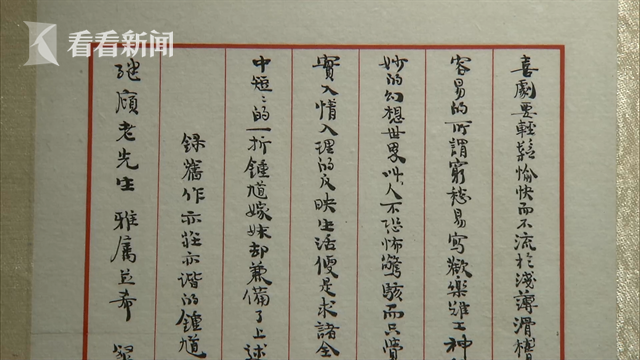 看看新闻
喜劇要輕鬆愉快而不流於淺薄滑稽
容易的所謂窮愁易寫歡樂難工神
妙的幻想世界叫人不恐怖驚駭而只覺
實入情入理的反映生活便是求諸全
中短〻的一折鍾馗嫁妹却兼備了上述
録舊作亦莊亦谐的鍾馗
继廎老先生 雅属並希